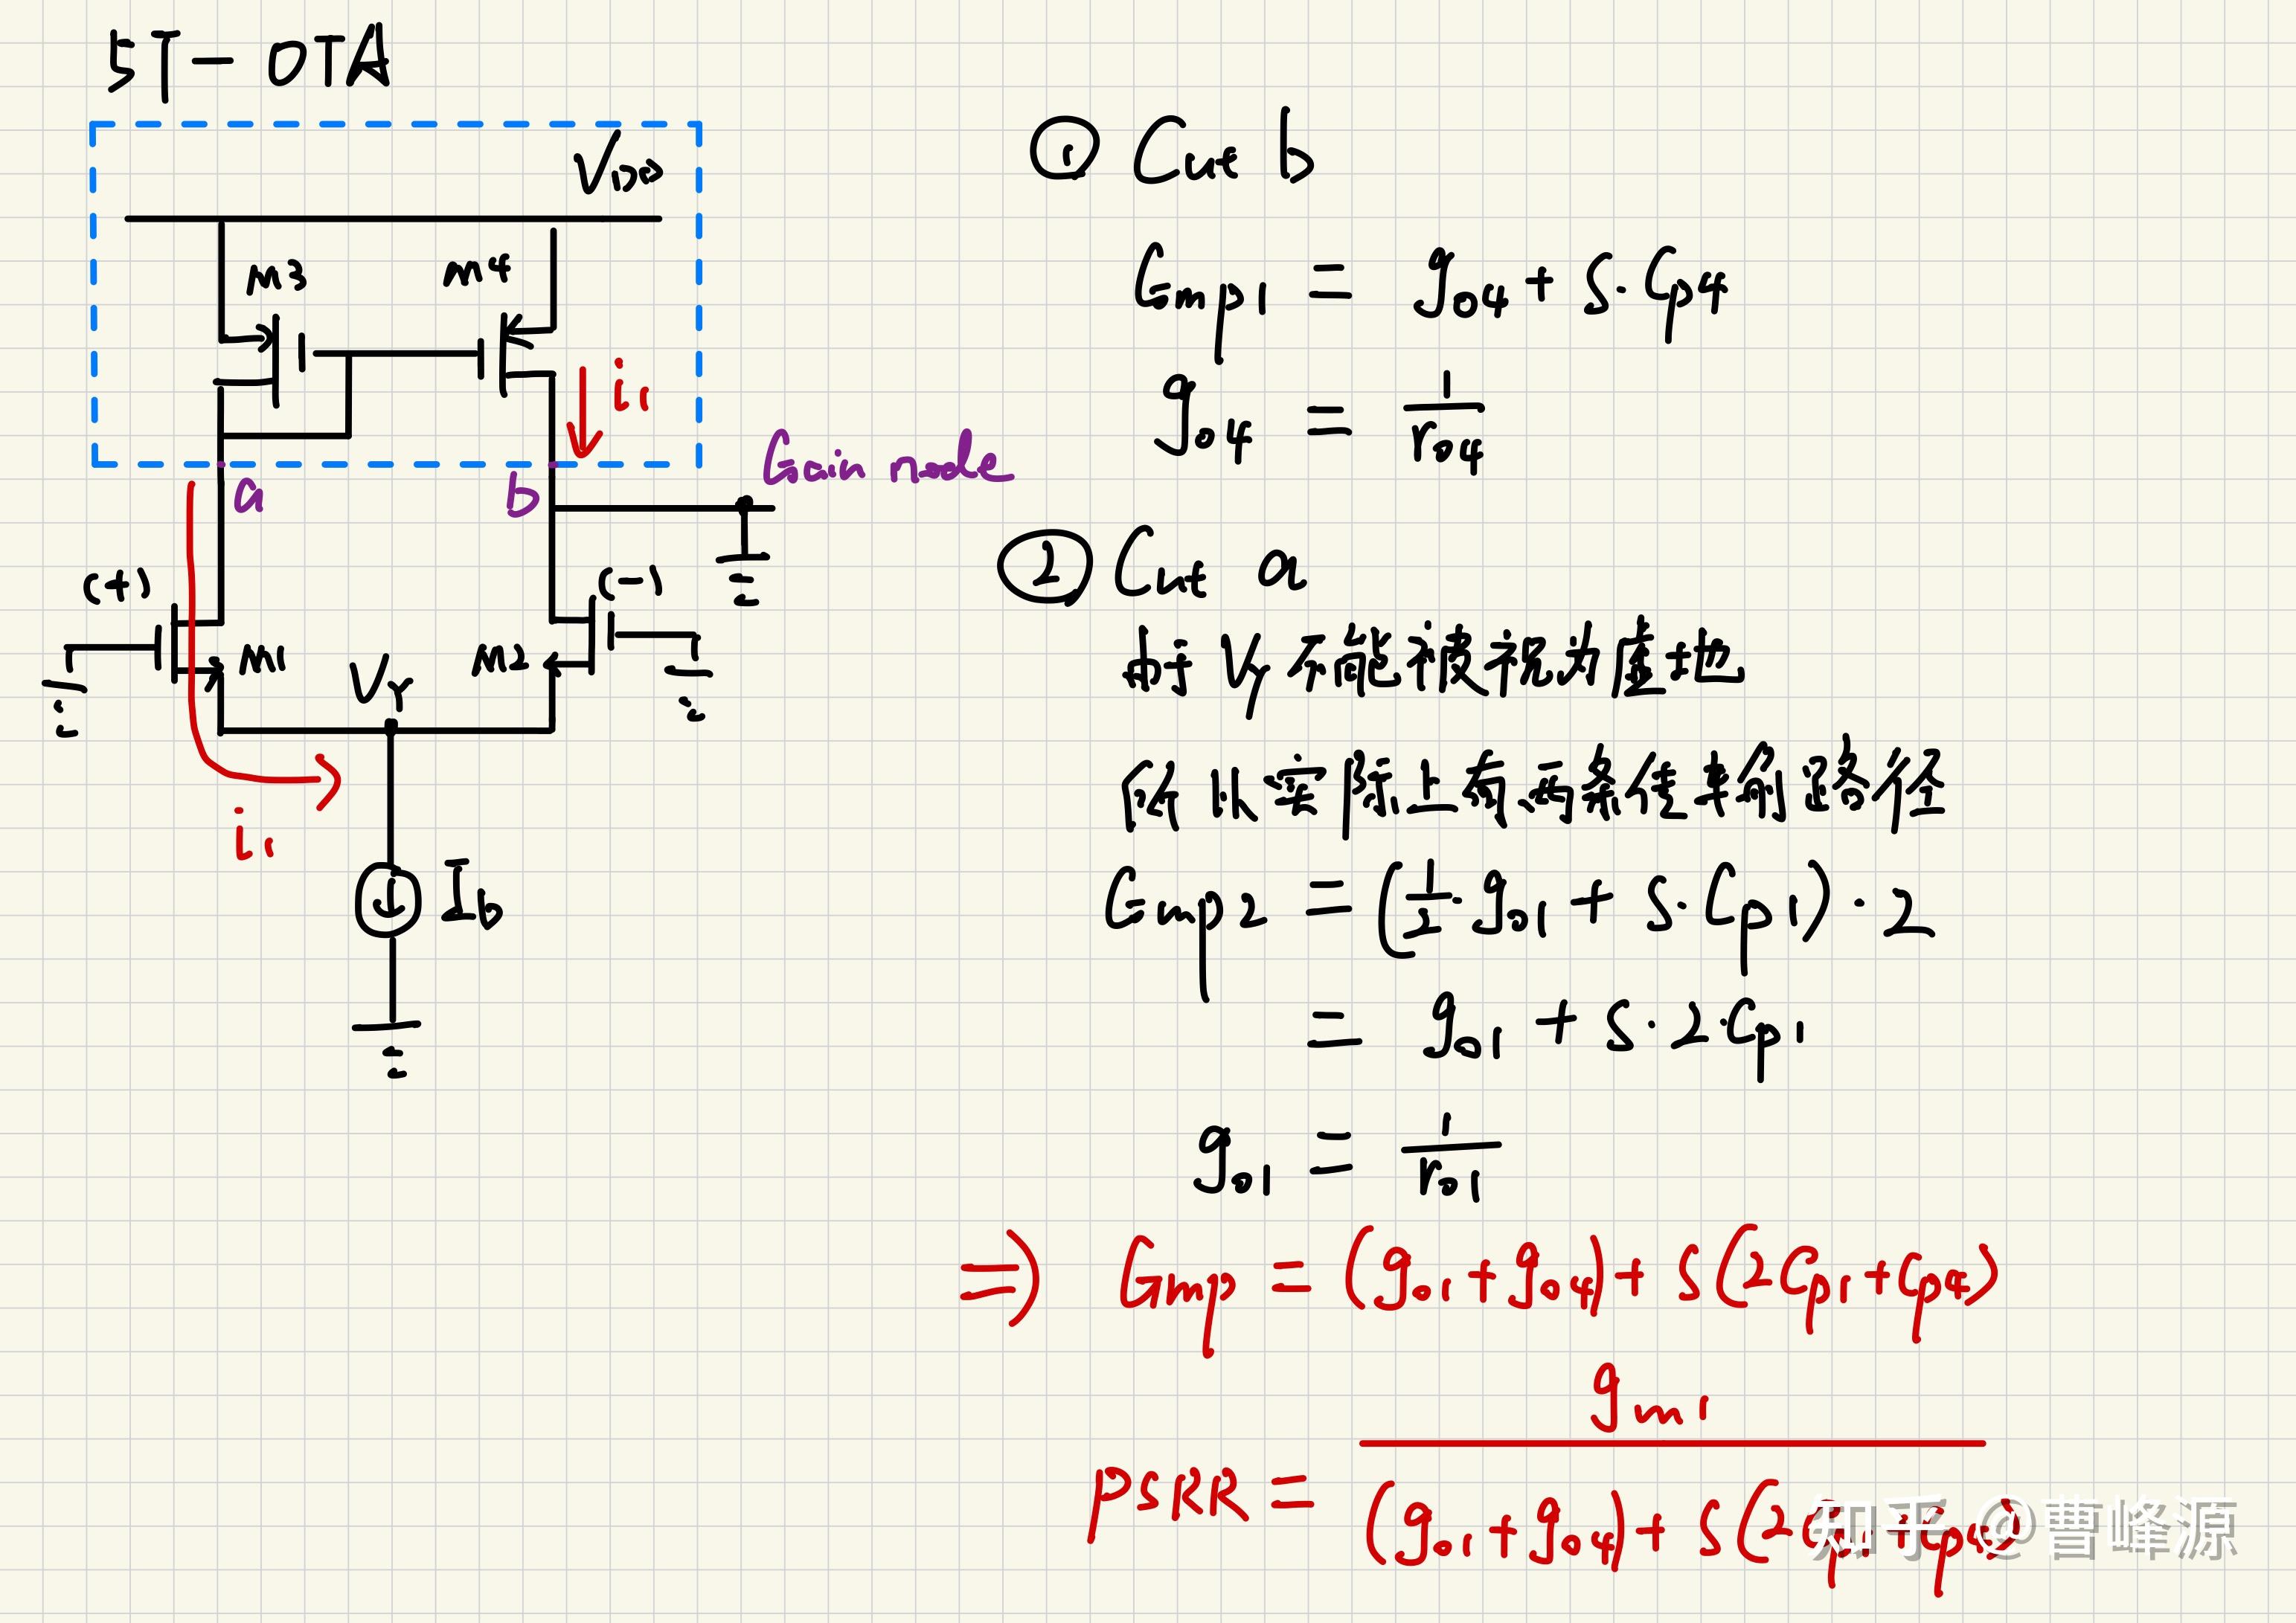 5T-OTA
V_DD
M3
M4
i_1
Gain node
a
b
(+)
(-)
M1
M2
V_Y
i_1
I_b
① Cut b
G_mp1 = g_o4 + S·C_p4
g_o4 = 1/r_o4
② Cut a
由于 V_Y 不能被视为虚地
所以实际上有两条传车的路径
G_mp2 = (1/2·g_o1 + S·C_p1)·2
= g_o1 + S·2·C_p1
g_o1 = 1/r_o1
⇒ G_mp = (g_o1+g_o4) + S(2C_p1+C_p4)
PSRR = g_m1/((g_o1+g_o4) + S(2C_p1+C_p4))
知乎 @曹峰源